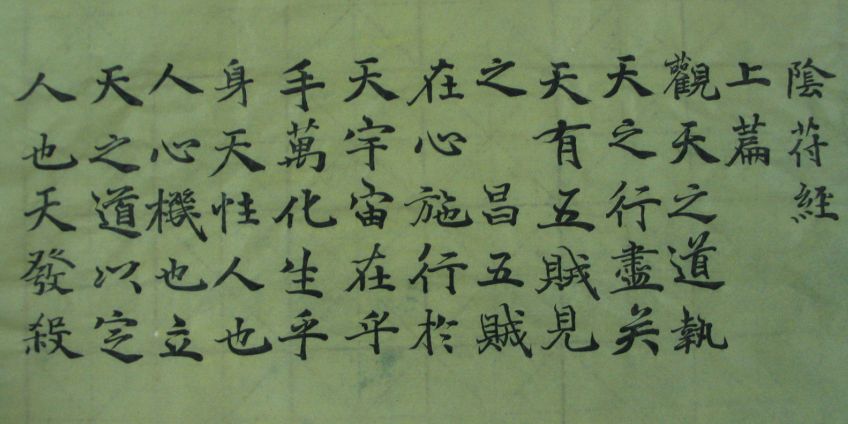 陰符經
上篇
觀天之道執
天之行盡矣
天有五賊見
之 昌五賊
在心 施行於
天宇宙在乎
手萬化生乎
身天性人也
人心機也立
天之道以定
人也天發殺